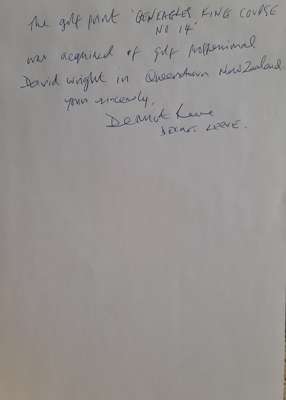 The golf print 'GLENEAGLES KING COURSE
NO 14'
was acquired of golf professional
David Wright in Queenstown New Zealand
your sincerely,
Derrick Leeve
LEEVE.